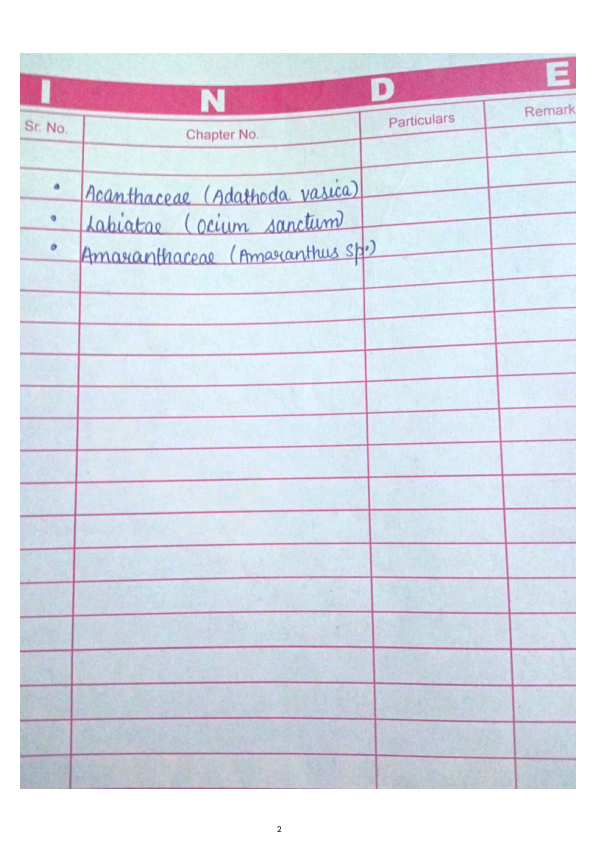 I N D E
Sr. No. Chapter No. Particulars Remark
• Acanthaceae (Adathoda vasica)
• Labiatae (Ocium sanctum)
• Amaranthaceae (Amaranthus sp.)
2